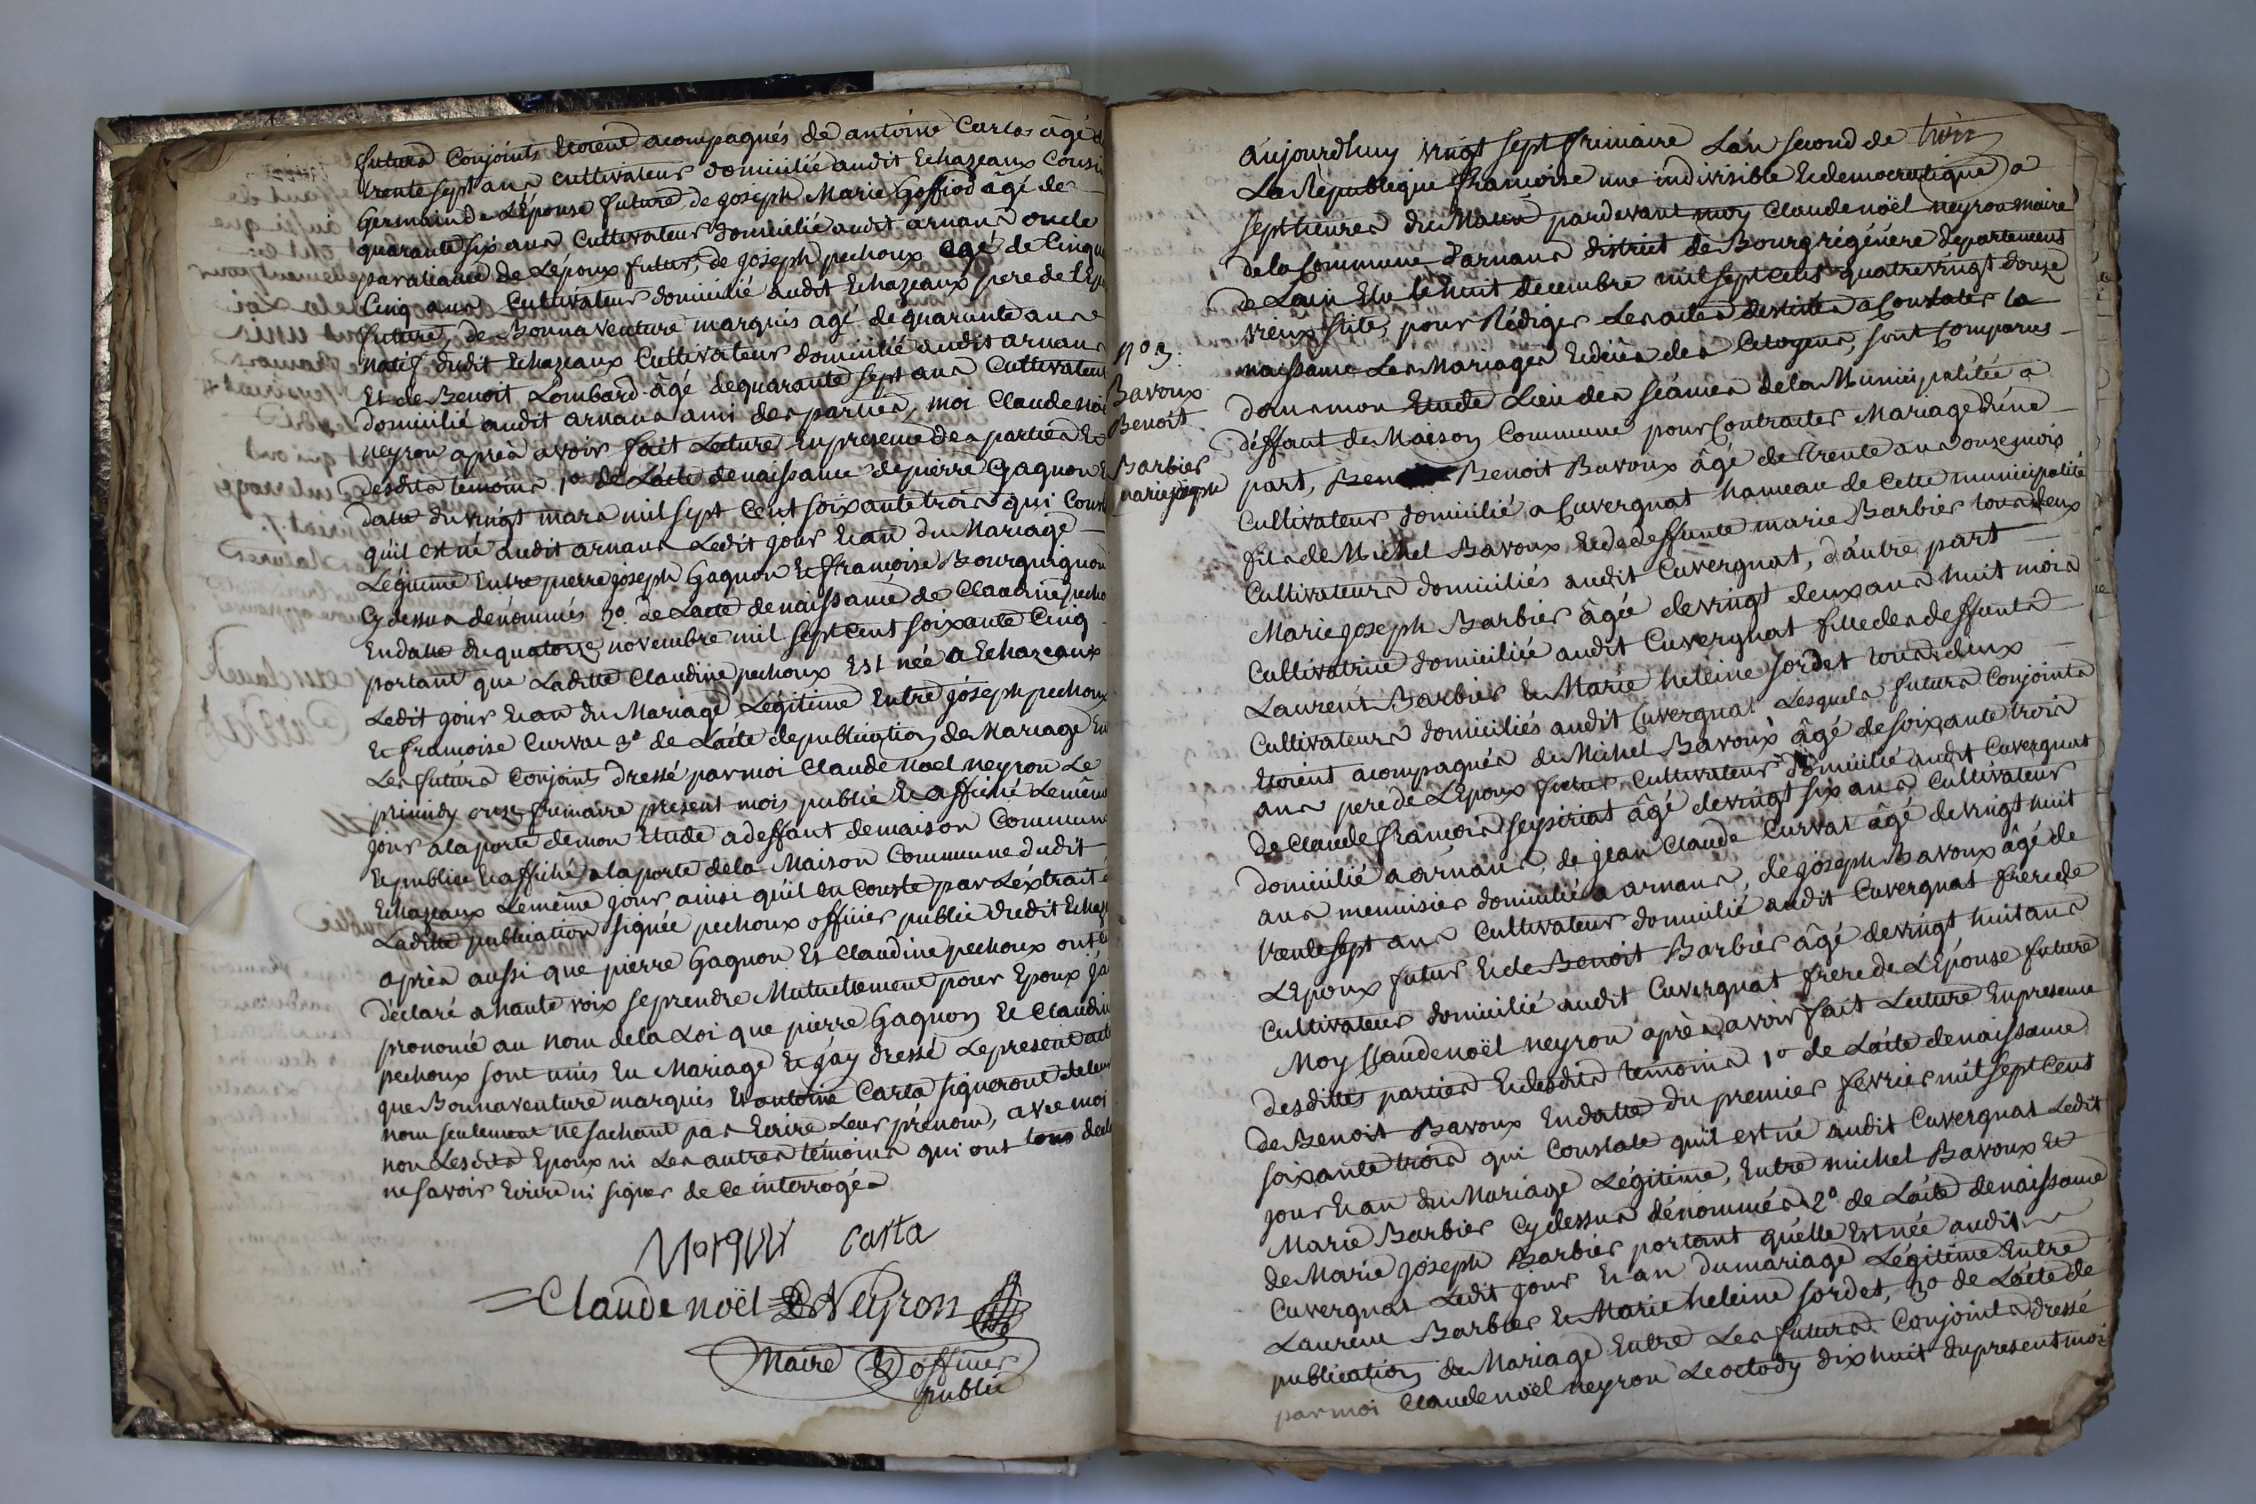 futurs Conjoints Etoient acompagnés de antoine Carlas âgé de
trente sept ans cultivateur domicilié audit Echazeaux Cousin
Germain de L'épouse future, de joseph Marie Goffiod âgé de
quarante six ans Cultivateur domicilié audit arnans oncle
par aliance de L'époux futur, de joseph pechoux agé de Cinqu
Cinq ans Cultivateur domicilié audit Echazeaux pere de l'Ep
future, de Bonnaventure marquis agé de quarante ans
natif dudit Echazeaux Cultivateur domicilié audit arnans
Et de Benoit Lombard âgé de quarante sept ans Cultivateur
domicilié audit arnans ami des parties, moi Claude noël
neyron après avoir fait Lecture En presence des parties Et
desdits temoins 1º de L'acte de naissance de pierre Gagnon E
datte du vingt mars mil sept Cent soixante trois qui Cons
qu'il est né audit arnans Ledit jour Et an du Mariage
Légitime Entre pierre joseph Gagnon Et francoise Bourguignon
Cy dessus dénommés 2º de L'acte de naissance de Claudine pecho
En datte du quatorze novembre mil sept Cent soixante Cinq
portant que Laditte Claudine pechoux Est née a Echazeaux
Ledit jour Et an du Mariage Légitime Entre joseph pechoux
Et francoise Curvat 3º de L'acte de publication de Mariage En
Les futurs Conjoints dressé par moi Claude noel neyron Le
primidy onze frimaire present mois publié Et affiché Le même
jour a la porte de mon Etude a deffaut de maison Commune
Et publiée Et affiché a la porte de la Maison Commune dudit
Echazeaux Le même jour ainsi qu'il En Conste par L'éxtrait
Laditte publication signée pechoux officier public dudit Echaz
après aussi que pierre Gagnon Et Claudine pechoux ont
déclaré a haute voix se prendre Mutuellement pour Epoux j'ai
prononcé au nom de la Loi que pierre Gagnon Et Claudin
pechoux sont unis En Mariage Et j'ay dressé Le present acte
que Bonnaventure marquis Et antoine Carla signeront de leur
nom seulement ne sachant pas Ecrire Leur prénom, avec moi
non Lesdits Epoux ni Les autres témoins qui ont tous decla
ne savoir Ecrire ni signer de ce interrogés
Marquis Carla
Claude noël Neyron
Maire & officier
public
nº 3.
Bavoux
Benoit
Barbier
marie joseph
trois
aujourdhuy vingt sept frimaire L'an second de
La République francoise une indivisible Et democratique a
sept heures du Matin pardevant moy Claude noël neyron maire
de la Commune d'arnans district de Bourg régénéré departement
de Lain Elu le huit decembre mil sept cent quatre vingt douze
vieux stile, pour Rédiger Les actes destinés a Constater la
naissance Les Mariages Et décès des Citoyens, sont Comparus
dans mon Etude Lieu des séances de la Municipalitée a
déffaut de Maison Commune pour Contracter Mariage d'une
part, Benoit Bavoux âgé de trente ans onze mois
Cultivateur domicilié a Cuvergnat hameau de Cette municipalité
fils de Michel Bavoux Et de deffunte marie Barbier tous deux
Cultivateurs domiciliés audit Cuvergnat, d'autre part
Marie joseph Barbier âgée de vingt deux ans huit mois
Cultivatrice domiciliée audit Cuvergnat fille des deffunts
Laurent Barbier Et Marie heleine Sordet tous deux
Cultivateurs domiciliés audit Cuvergnat Lesquels futurs Conjoints
Etoient acompagnés de Michel Bavoux âgé de soixante trois
ans pere de L'Epoux futur Cultivateur domicilié audit Cuvergnat
de Claude francois seysiriat âgé de vingt six ans Cultivateur
domicilié a arnans, de jean Claude Curvat âgé de vingt huit
ans menuisier domicilié a arnans, de joseph Bavoux âgé de
trente sept ans Cultivateur domicilié audit Cuvergnat frere de
L'Epoux futur Et de Benoit Barbier âgé de vingt huit ans
Cultivateur domicilié audit Cuvergnat frere de L'Épouse future
Moy Claude noël neyron après avoir fait Lecture En presence
desdittes parties Et desdits temoins 1º de L'acte de naissance
de Benoit Bavoux En datte du premier fevrier mil sept Cent
soixante trois qui Constate qu'il est né audit Cuvergnat Ledit
jour Et an du Mariage Légitime, Entre michel Bavoux Et
Marie Barbier Cy dessus dénommés 2º de L'acte de naissance
de Marie joseph Barbier portant qu'elle Est née audit
Cuvergnat Ledit jour Et an du mariage Légitime Entre
Laurent Barbier Et Marie heleine Sordet, 3º de L'acte de
publication de Mariage Entre Les futurs Conjoints dressé
par moi Claude noël neyron Le octody dix huit du present moi